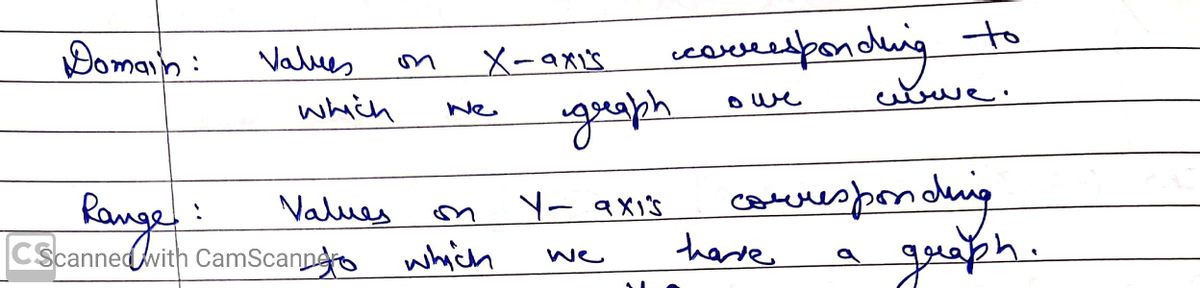 Domain: Values on X-axis corresponding to
which we graph our curve.
Range: Values on Y-axis corresponding
to which we have a graph.
CS Scanned with CamScanner